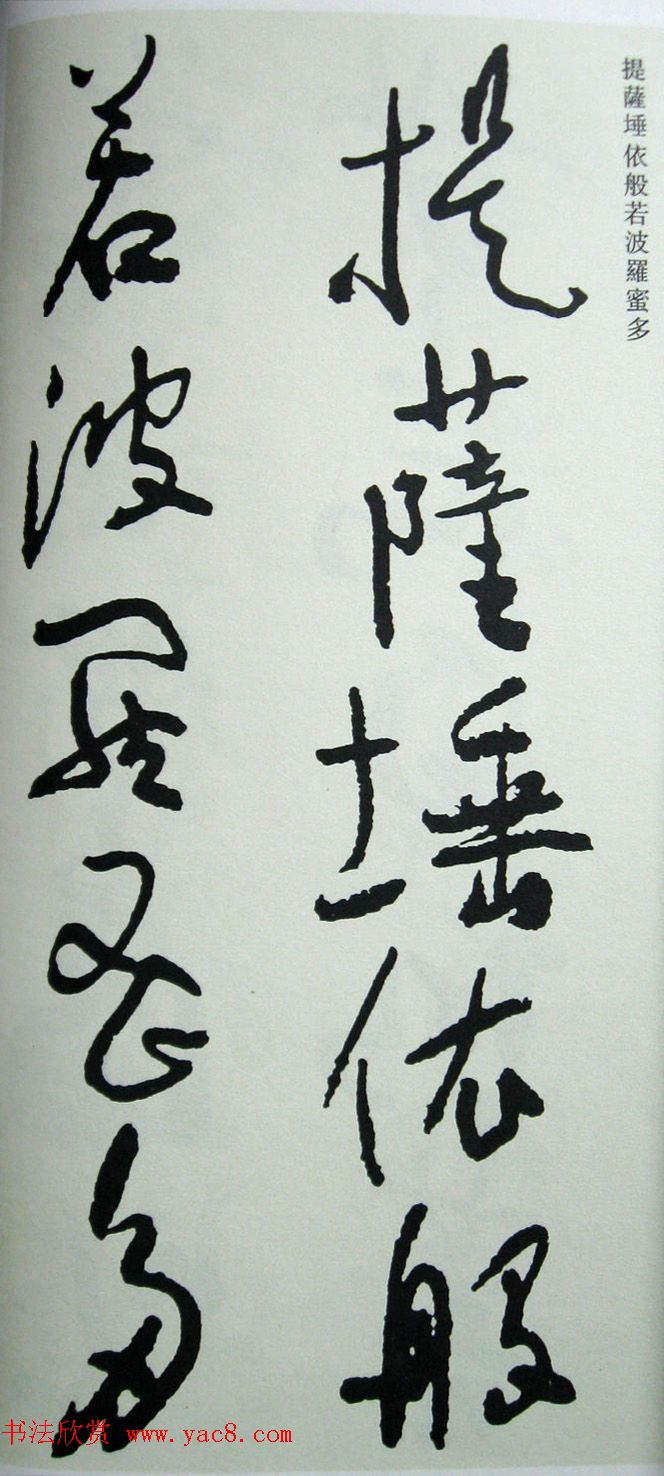 提薩埵依般若波羅蜜多
提薩埵依般
若波羅蜜多
书法欣赏 www.yac8.com